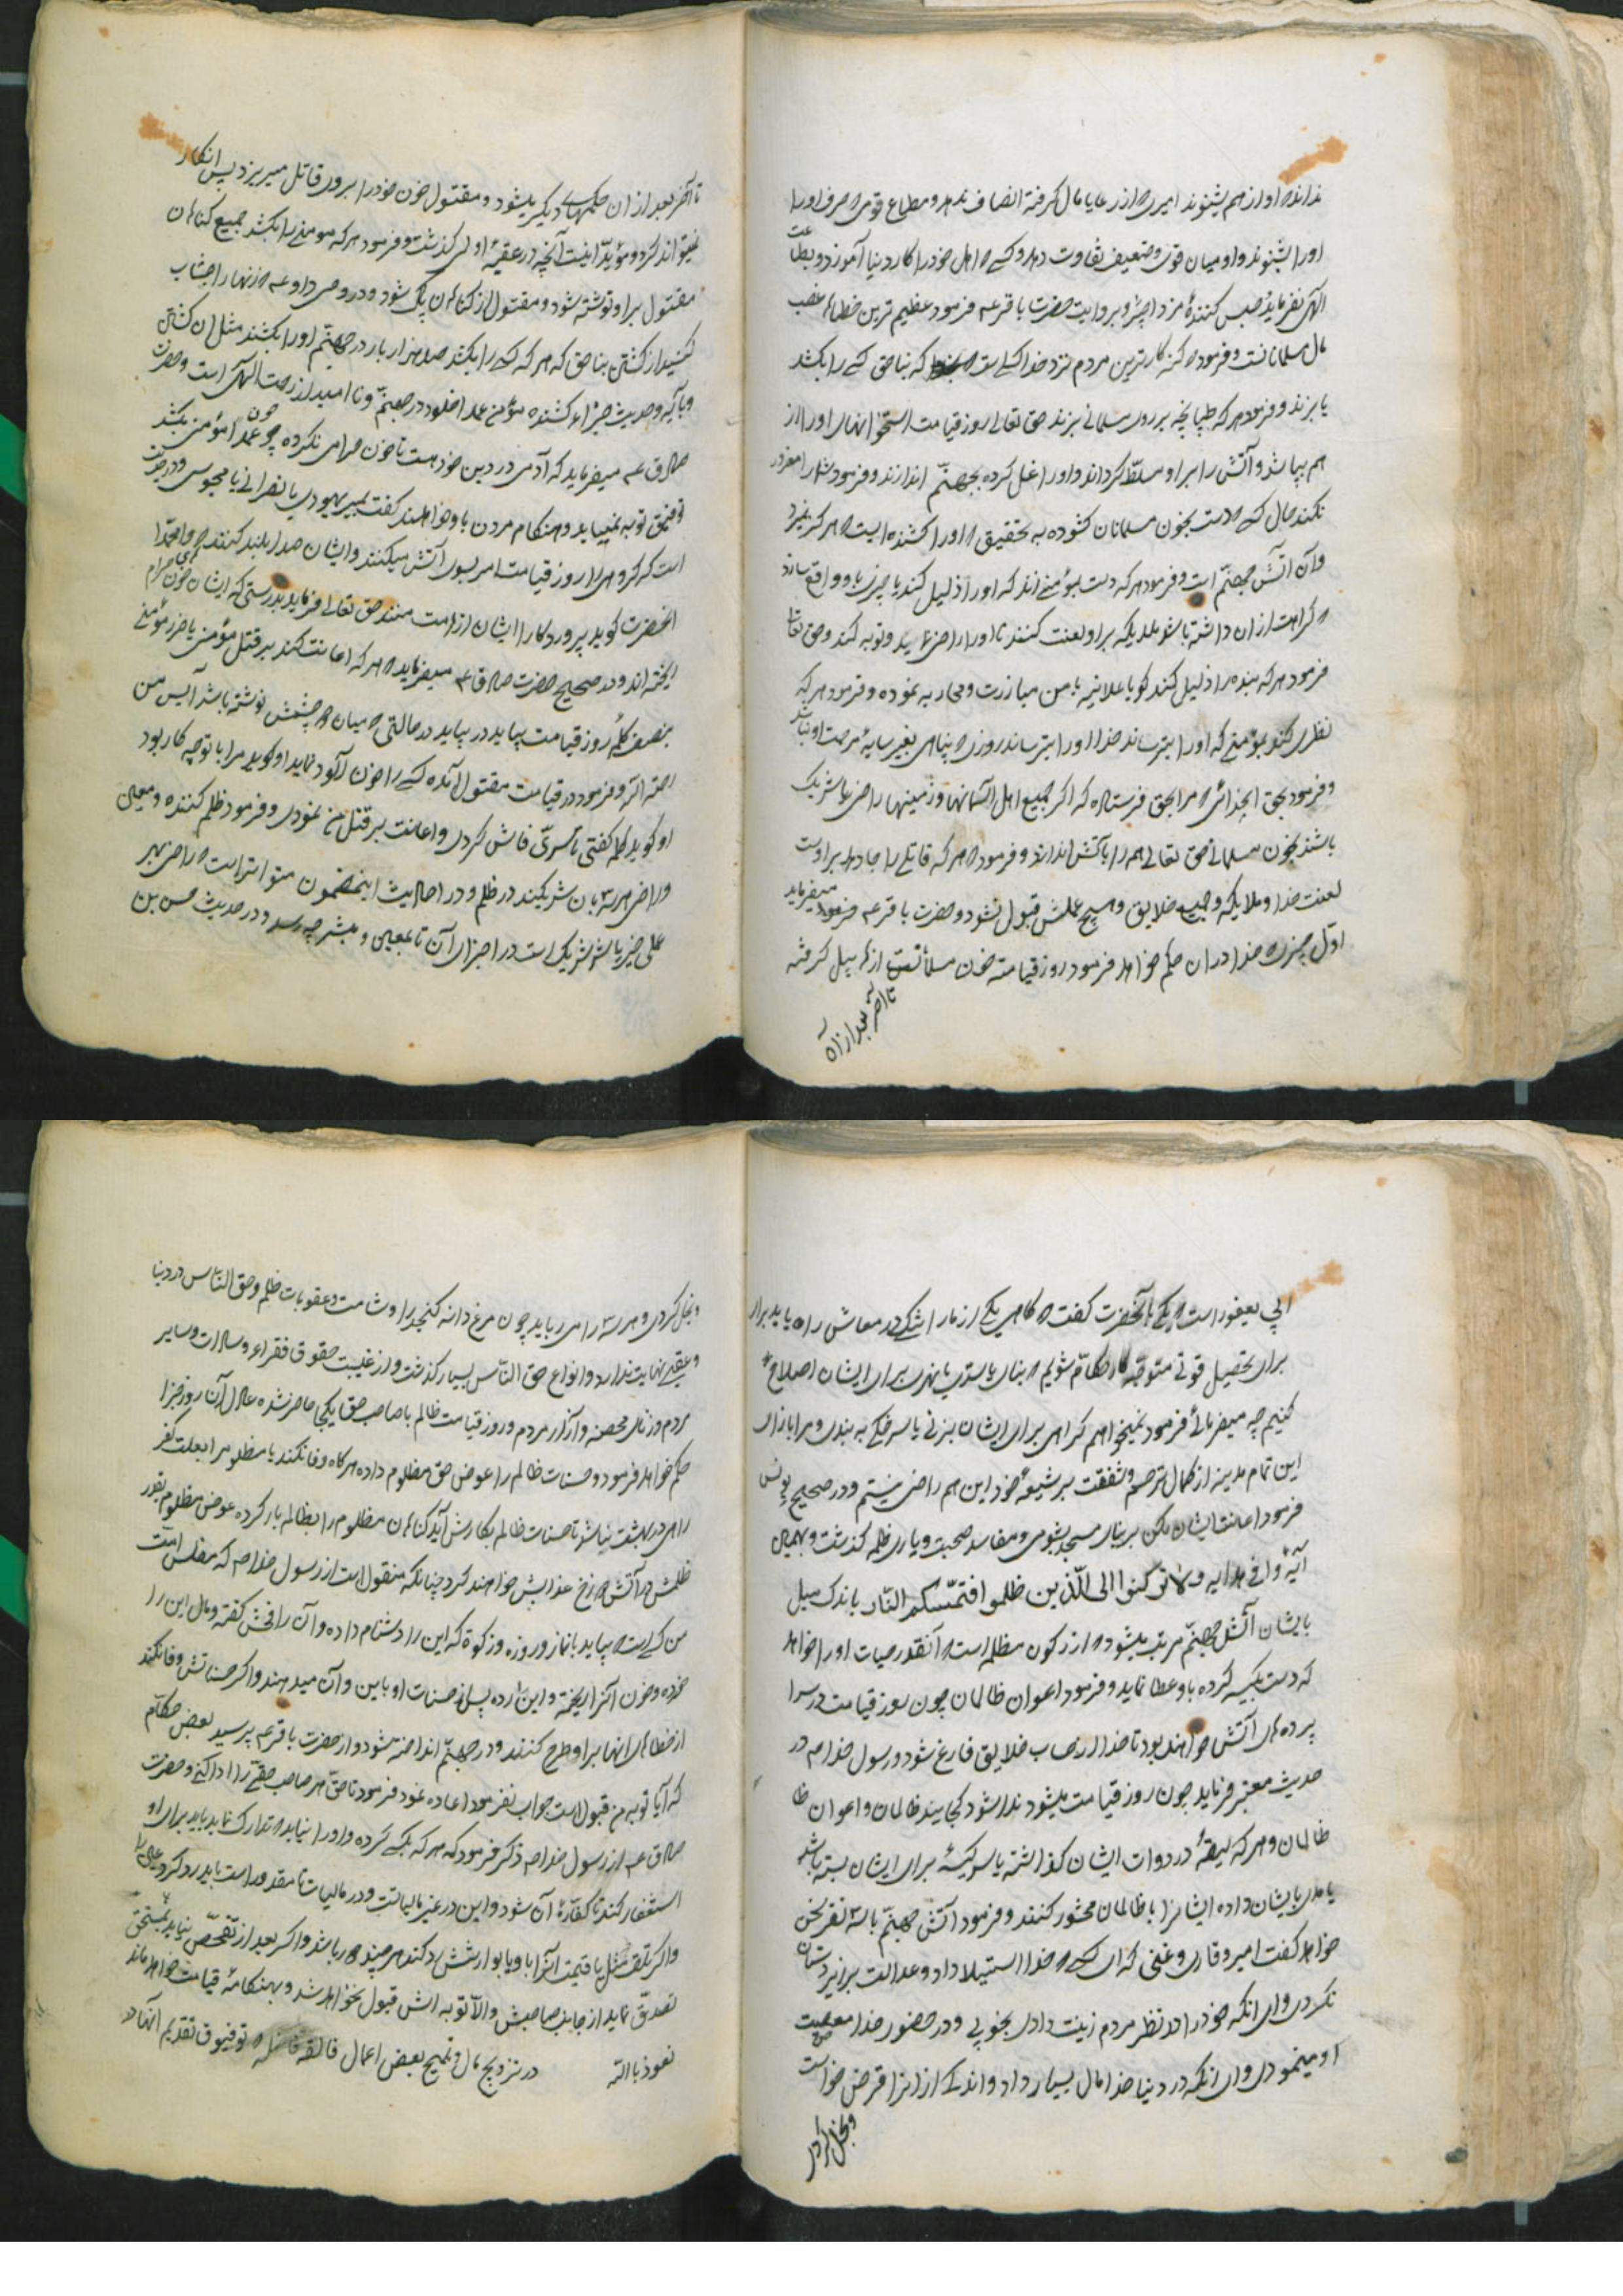 ندانده او از هم بشنوند امیری ه از رعایا مال گرفته انصاف ندهد و مطاع قومی ه حرف او را
او را بشنوند و او میان قوی و ضعیف تفاوت دهد و کسے ه اهل خود را کار دنیا آموزد و بطاعت
الهی نفرماید حبس کنندهٔ مزد اجیر و بروایت حضرت باقر ع فرمود عظیم ترین خطاها غصب
مال مسلمانست و فرمود ه گنه کارترین مردم نزد خدا کسے است که بناحق کسے را بکشد
یا بزند و فرمود هر که طپانچه بر روی مسلمانے بزند حق تعالے روز قیامت استخوانهای او را از
هم بپاشد و آتش را بر او مسلّط گرداند و او را غل کرده بجهنّم اندازند و فرمود شما را مغرور
نکند حال کسے ه دست بخون مسلمانان گشوده به تحقیق ه او را کشنده ایست ه هرگز نمیرد
و آن آتش جهنّم است و فرمود هر که دست بمؤمنے زند که او را ذلیل کند یا چیزی باو واقع سازد
ه کراهت ازان داشته باشد ملایکه بر او لعنت کنند تا او را راضی نماید و توبه کند و حق تعالے
فرمود هر که بنده را ذلیل کند گویا علانیه با من مبارزت و محاربه نموده و فرمود هر که
نظری کند بمؤمنے که او را بترساند خدا او را بترساند روزی ه پناهی بغیر سایهٔ مرحمت او نباشد
و فرمود بحق انخدائی ه مرا بحق فرستاده که اگر جمیع اهل آسمانها و زمینها راضی یا شریک
باشند بخون مسلمانے حق تعالے همه را بآتش اندازد و فرمود ه هر که قاتلے را جا دهد بر اوست
لعنت خدا و ملایکه و جمیع خلایق و هیچ عملش قبول نشود و حضرت باقر ع میفرماید
اوّل چیزی ه خدا دران حکم خواهد فرمود روز قیامت خون مسلمانست از هابیل گرفته
تا آخر بعد از آن
تا آخر بعد ازان حکمهای دیگر میشود و مقتول خون خود را بر روی قاتل میریزد پس انکار
نمیتواند کرد و مؤیّد اینست آنچه در عقبهٔ اولی گذشت و فرمود هر که مومنے را بکشد جمیع گناهان
مقتول بر او نوشته شود و مقتول از گناهان پاک شود و در وحی داود ع ه زنهار اجتناب
کنید از کشتن بناحق که هر که کسے را بکشد صد هزار بار در جهنّم او را بکشند مثل آن کشتن
و بآیه و حدیث جزاء کشنده مؤمن عمداً خلود در جهنّم و ناامید از رحمت الهی است و حضرت
صادق ع میفرماید که آدمی در دین خود هست تا خون حرامی نکرده چون عمداً مؤمن بکشد
توفیق توبه نمییابد و هنگام مردن باو خواهند گفت بمیر یهودی یا نصرانے یا مجوسی و در حدیث
است که گروهی را روز قیامت امر بسوی آتش میکنند و ایشان صدا بلند کنند ه وا محمّدا
انحضرت گوید پروردگارا ایشان از امت منند حق تعالے فرماید بدرستی که ایشان خون حرام
ریخته اند و در صحیح حضرت صادق ع میفرماید ه هر که اعانت کند بر قتل مؤمن یا ضرر مؤمنے
بنصف کلمهٔ روز قیامت بیاید در حالتی ه میان دو چشمش نوشته باشد آیس من
رحمة الله و فرمود در قیامت مقتول آمده کسے را خون آلود نماید او گوید مرا با تو چه کار بود
او گوید کلمه گفتی یا سرّی فاش کردی و اعانت بر قتل من نمودی و فرمود ظلم کننده و معین
و راضی هر سه بآن شریکند در ظلم و در احادیث اینمضمون متواتر است ه راضی بهر
عملی خیر یا شر شریک است در اجزای آن تا بمعین و مبشر چه رسد و در حدیث حسن بن
ابی یعفور است ه یکے بآنحضرت گفت ه گاهی یکے از ما را تنگے در معاش راه یابد برای
برای تحصیل قوتی متوجّه کار حکّام شویم ه بنای یا سدی یا نهری برای ایشان اصلاح
کنیم چه میفرمائے فرمود نمیخواهم گرهی برای ایشان بزنے یا سر خیکے به بندی و مرا بازای
این تمام مدینه از کمال ترحم و شفقت بر شیعهٔ خود این هم راضی نیستم و در صحیح یونس
فرمود اعانت ایشان مکن بر بنای مسجد بشومی و مفاسد صحبت و یاری ظلمه گذشت و بهمین
آیهٔ وافے هدایه ولا ترکنوا الی الّذین ظلموا فتمسّکم النّار باندک میل
بایشان آتش جهنّم مرتب میشود ه از رکون مظلمه است ه آنقدر حیات او را خواهد
که دست بکیسه کرده باو عطا نماید و فرمود اعوان ظالمان چون روز قیامت در سرا
پرده های آتش خواهند بود تا خدا از حساب خلایق فارغ شود و رسول خدا ص در
حدیث معتبر فرماید چون روز قیامت میشود ندا شود کجایند ظالمان و اعوان ظا
ظالمان و هر که لیقهٔ در دوات ایشان گذاشته یا سر کیسهٔ برای ایشان بسته باشد
یا مدی بایشان داده ایشانرا با ظالمان محشور کنند و فرمود آتش جهنّم با سه نفر سخن
خواهد گفت امیر و قاری و غنی که ای کسے ه خدا استیلا داد و عدالت بر زیردستان
نکردی و ای انکه خود را در نظر مردم زینت دادی بخوبی و در حضور خدا معصیت
او مینمودی و ای انکه در دنیا خدا مال بسیار داد و اندکے از انرا قرض خواست
و بخل کردی
و بخل کردی و هر سه را می رباید چون مرغ دانه کنجد را و شامت و عقوبات ظلم و حق النّاس در دنیا
و عقبے نهایت ندارد و انواع حق النّاس بسیار گذشت و از غیبت حقوق فقراء و سادات و سایر
مردم و زنای محصنه و آزار مردم و روز قیامت ظالم با صاحب حق یکجا حاضر شده عادل آن روز جزا
حکم خواهد فرمود و حسنات ظالم را عوض حق مظلوم داده هرگاه وفا نکند یا مظلوم را بعلت کفر
راهی در بهشت نباشد تا حسنات ظالم بکارش آید گناهان مظلوم را بظالم بار کرده عوض مظلوم بقدر
ظلمش در آتش دوزخ عذابش خواهند کرد چنانکه منقول است از رسول خدا ص که مفلس امّت
من کسے است ه بیاید با نماز و روزه و زکوة که این را دشنام داده و آن را فحش گفته و مال این را
خورده و خون آنرا ریخته و این را زده پس از حسنات او باین و آن میدهند و اگر حسناتش وفا نکند
از خطاهای انها بر او طرح کنند و در جهنّم انداخته شود و از حضرت باقر ع پرسید بعض حکّام
که آیا توبه من قبول است جواب نفرمود اعاده نمود فرمود تا حق هر صاحب حقّے را ادا کنے و حضرت
صادق ع از رسول خدا ص ذکر فرمود که هر که بیکے کرده و او را نیابد ه تدارک نماید باید برای او
استغفار کند تا کفّارهٔ آن شود و این در غیر مالیاتست و در مالیات تا مقدور است باید رد کرد عین را
و اگر تلف مثل یا قیمت آنرا باو یا بوارثش رد کند هر چند ه ربا باشد و اگر بعد از تفحّص نیابد بمستحق
تصدّق نماید از جانب صاحبش و الّا توبه اش قبول نخواهد شد و بهنگامهٔ قیامت خواهد ماند
نعوذ بالله در ترویج مال و تمیح بعض اعمال فالقه فاضله ه توفیق تقدیم آنها